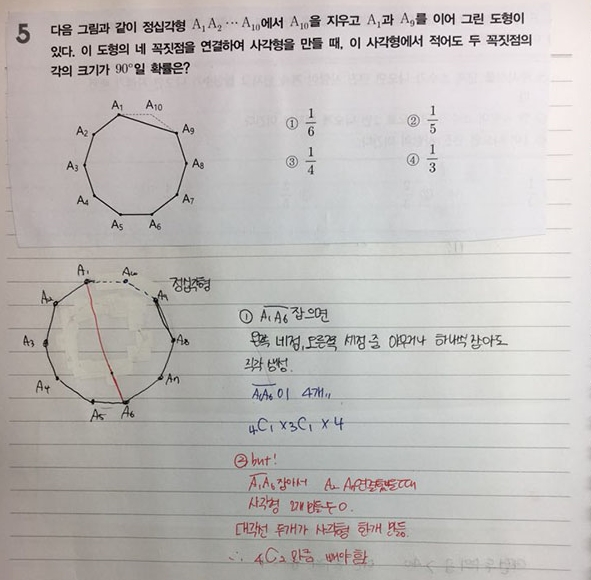 5 다음 그림과 같이 정십각형 A₁A₂ ⋯ A₁₀에서 A₁₀을 지우고 A₁과 A₉를 이어 그린 도형이
있다. 이 도형의 네 꼭짓점을 연결하여 사각형을 만들 때, 이 사각형에서 적어도 두 꼭짓점의
각의 크기가 90°일 확률은?
A₁ A₁₀
A₂ A₉
A₃ A₈
A₄ A₇
A₅ A₆
① 1/6 ② 1/5
③ 1/4 ④ 1/3
A₁ A₁₀ 정십각형
A₂ A₉
A₃ A₈
A₄ A₇
A₅ A₆
① A₁A₆ 잡으면
왼쪽 네점, 오른쪽 세점 중 아무거나 하나씩 잡아도
직각 생성.
A₁A₆ 이 4개,,
₄C₁ × ₃C₁ × 4
② but!
A₁A₆ 잡아서 A₂
사각형
대각선 두개가 사각형 한개 만듦.
∴ ₄C₂ 만큼 빼야 함